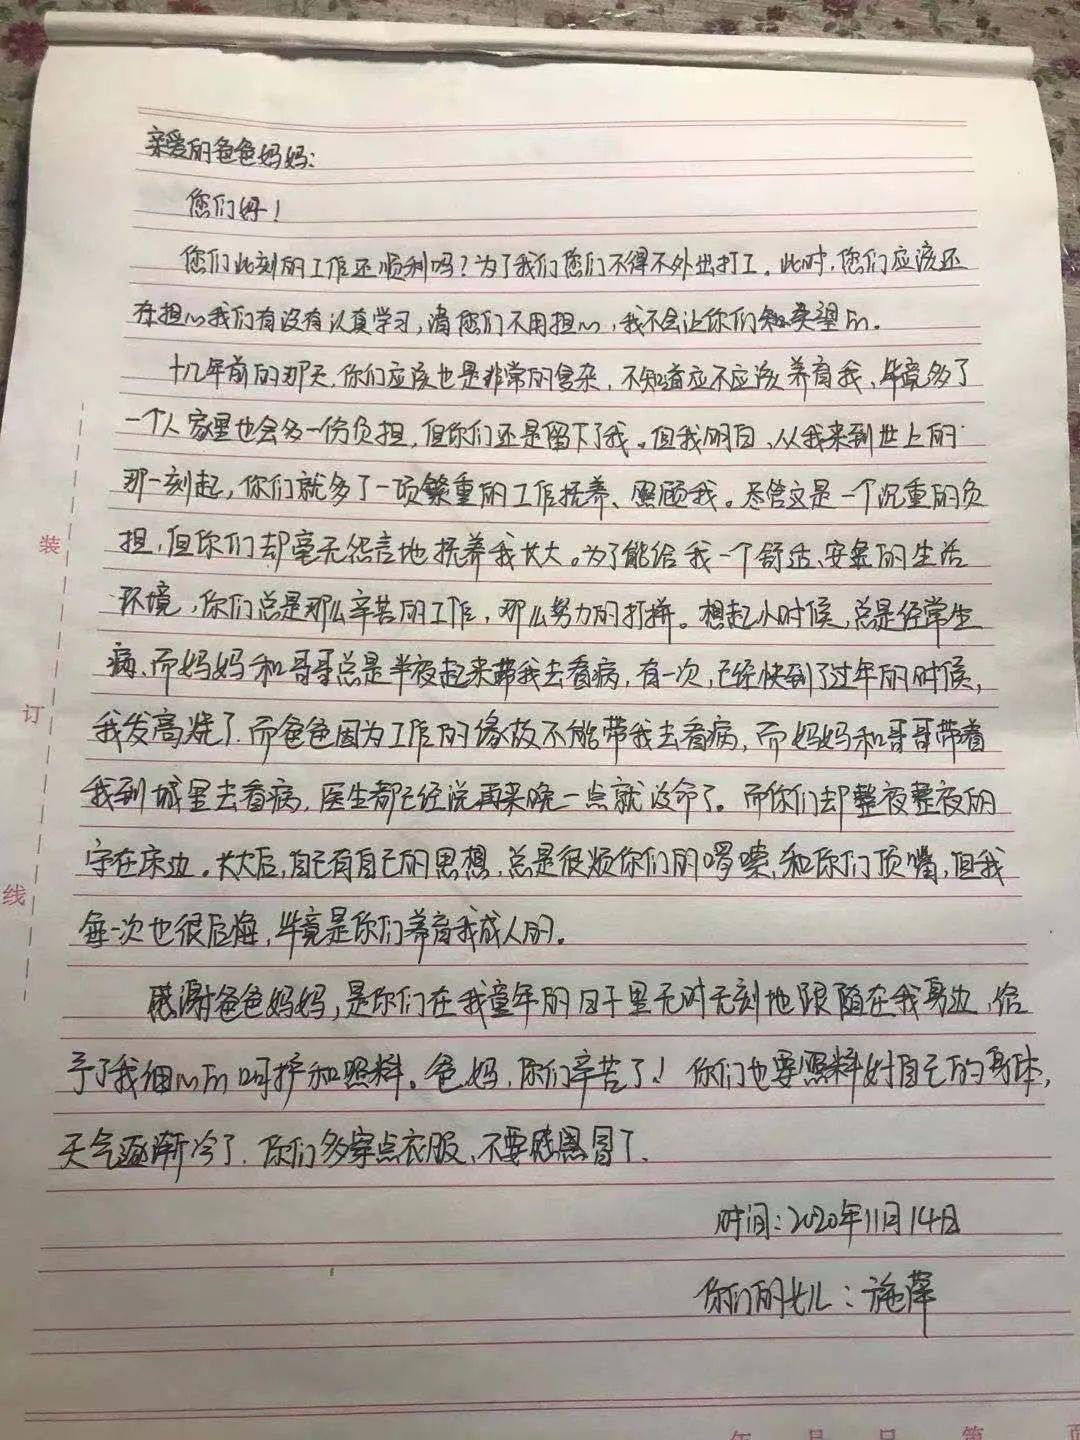 亲爱的爸爸妈妈:
您们好!
您们此刻的工作还顺利吗?为了我们您们不得不外出打工。此时,您们应该还
在担心我们有没有认真学习,请您们不用担心,我不会让你们失望的。
十几年前的那天,你们应该也是非常的复杂,不知道应不应该养育我、毕竟多了
一个人家里也会多一份负担,但你们还是留下了我。但我明白、从我来到世上的
那一刻起,你们就多了一项繁重的工作抚养、照顾我。尽管这是一个沉重的负
担,但你们却毫无怨言地抚养我长大。为了能给我一个舒适、安稳的生活
环境,你们总是那么辛苦的工作,那么努力的打拼。想起小时候,总是经常生
病、而妈妈和哥哥总是半夜起来带我去看病,有一次,已经快到了过年的时候,
我发高烧了.而爸爸因为工作的缘故不能带我去看病,而妈妈和哥哥带着
我到城里去看病,医生都已经说再来晚一点就没命了。而你们却整夜整夜的
守在床边。长大后,自己有自己的思想,总是很烦你们的啰嗦,和你们顶嘴,但我
每一次也很后悔,毕竟是你们养育我成人的。
感谢爸爸妈妈,是你们在我童年的日子里无时无刻地跟随在我身边,给
予了我细心的呵护和照料。爸妈,你们辛苦了!你们也要照料好自己的身体,
天气逐渐冷了.你们多穿点衣服、不要感冒了.
时间:2020年11月14日
你们的女儿:施萍
装
订
线
年 月 日 第 页